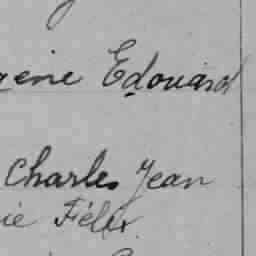 Edouard
Charles Jean
ie Félix